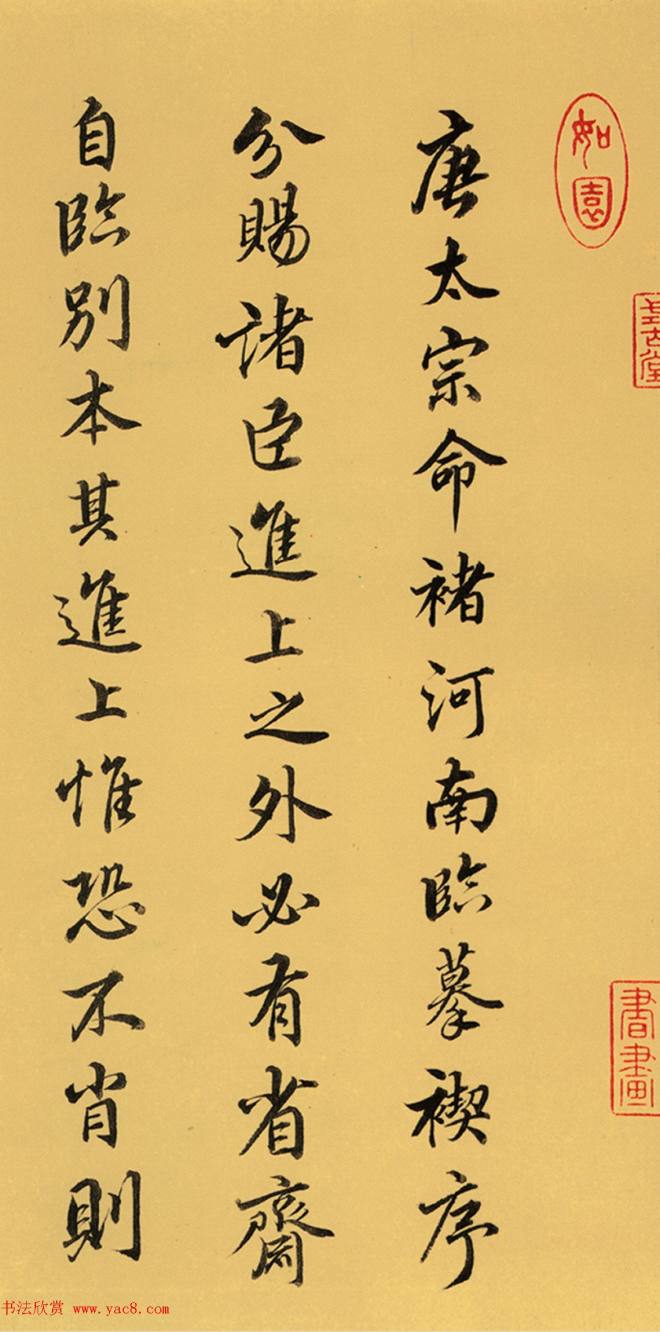 如園
書畫
唐太宗命褚河南臨摹禊序
分賜諸臣進上之外必有省齋
自臨別本其進上惟恐不肖則
书法欣赏 www.yac8.com